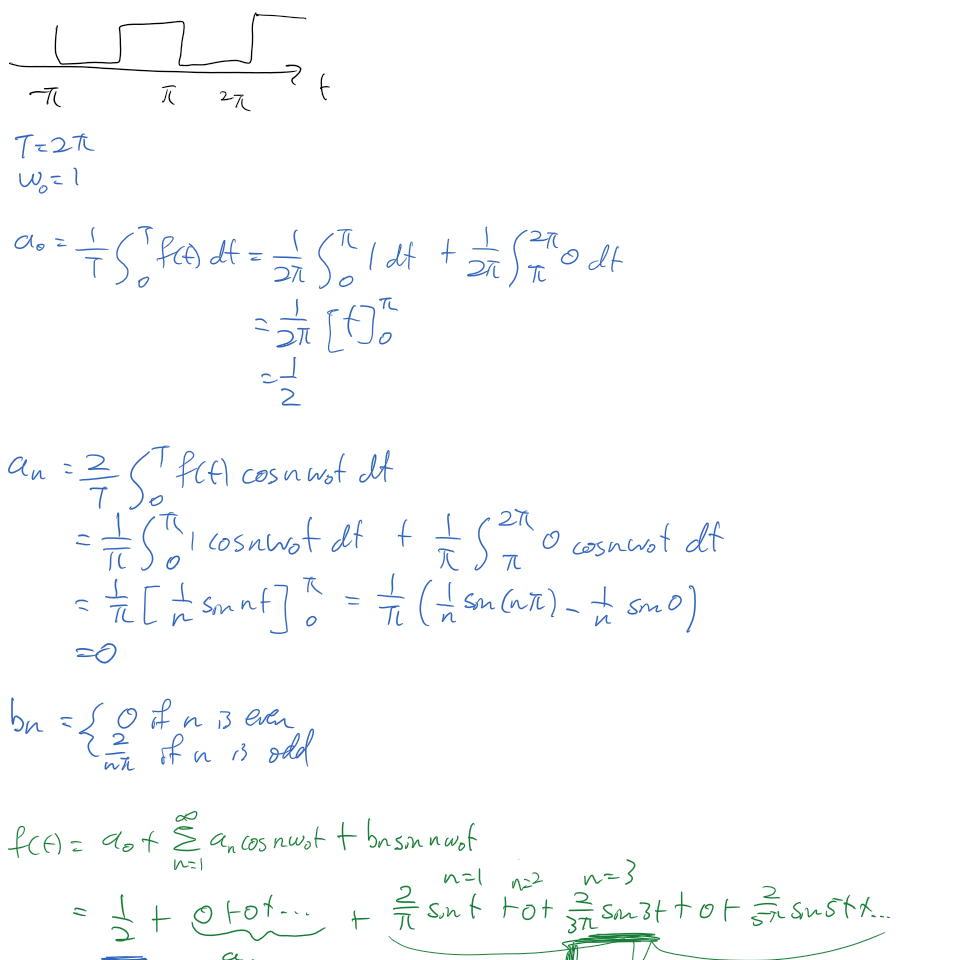 -π π 2π t
T=2π
ω₀=1
a₀ = 1/T ∫₀ᵀ f(t) dt = 1/2π ∫₀^π 1 dt + 1/2π ∫_π^2π 0 dt
= 1/2π [t]₀^π
= 1/2
aₙ = 2/T ∫₀ᵀ f(t) cos nω₀t dt
= 1/π ∫₀^π 1 cos nω₀t dt + 1/π ∫_π^2π 0 cos nω₀t dt
= 1/π [1/n sin nt]₀^π = 1/π (1/n sin(nπ) - 1/n sin 0)
=0
bₙ = { 0 if n is even
2/nπ if n is odd
f(t) = a₀ + ∑_{n=1}^∞ aₙ cos nω₀t + bₙ sin nω₀t
n=1 n=2 n=3
= 1/2 + 0+0+... + 2/π sin t + 0 + 2/3π sin 3t + 0 + 2/5π sin 5t + ...